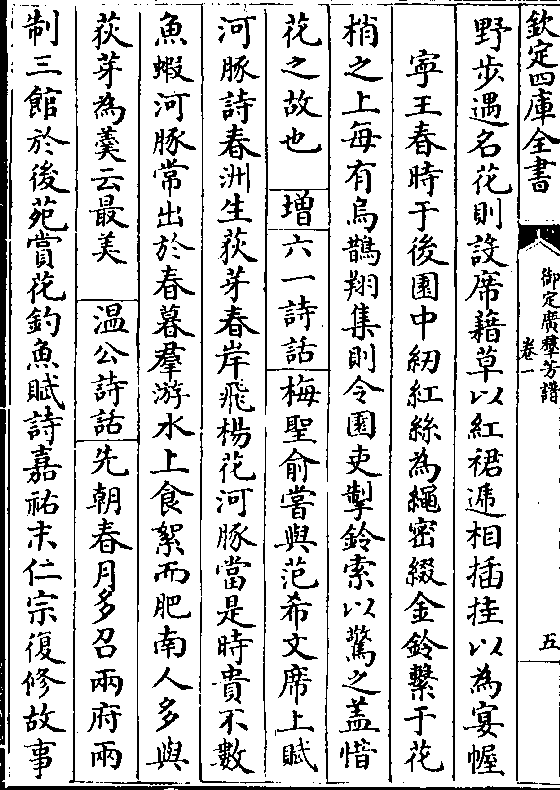 欽定四庫全書
御定廣羣芳譜
卷一
五
野步遇名花則設席藉草以紅裙遞相插挂以為宴幄
寧王春時于後園中紉紅絲為繩密綴金鈴繫于花
梢之上每有烏鵲翔集則令園吏掣鈴索以驚之蓋惜
花之故也 增六一詩話梅聖俞嘗與范希文席上賦
河豚詩春洲生荻芽春岸飛楊花河豚當是時貴不數
魚蝦河豚常出於春暮羣游水上食絮而肥南人多與
荻芽為羹云最美 温公詩話先朝春月多召兩府兩
制三館於後苑賞花釣魚賦詩嘉祐末仁宗復修故事